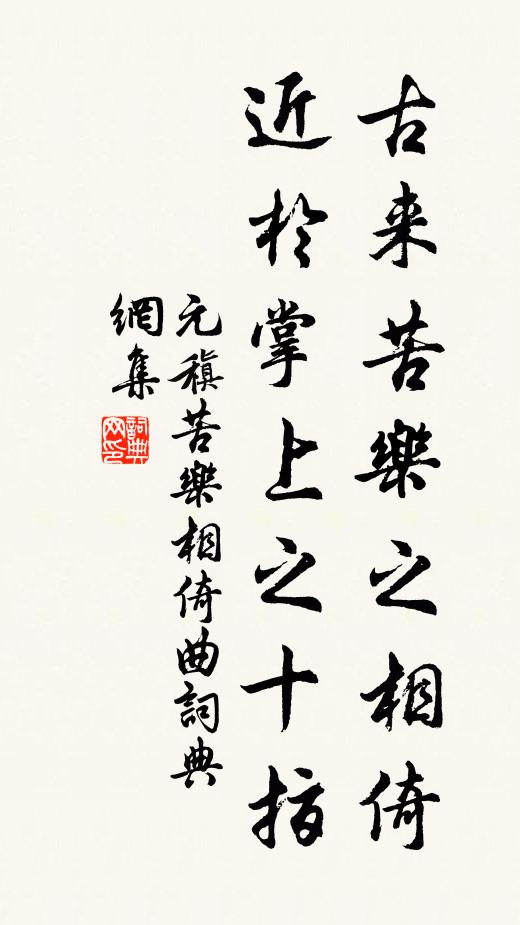 古来苦樂之相倚
近於掌上之十指
元稹苦樂相倚曲詞典
網集
詞典網印